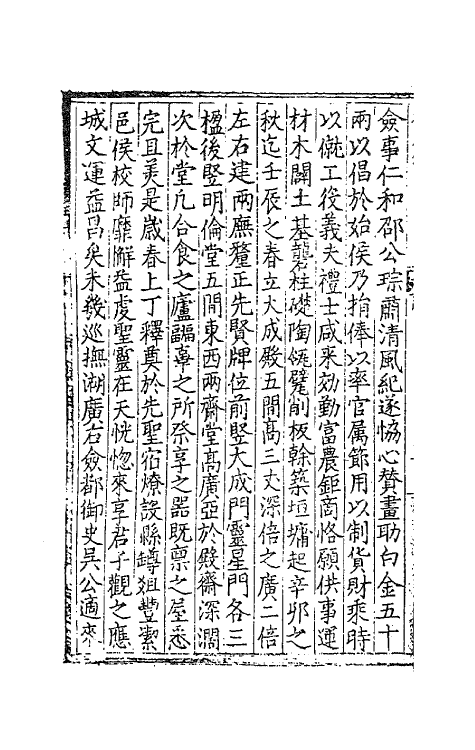 僉事仁和邵公琮肅清風紀遂恊心賛畫助白金五十
兩以倡於始侯乃捐俸以率官属節用以制貨財乘時
以僦工役義夫禮士咸来効勤富農鉅商恪願供事運
材木闢土基礱柱礎陶瓴甓削板榦築垣墉起辛夘之
秋迄壬辰之春立大成殿五間髙三丈深倍之廣二倍
左右建兩廡釐正先賢牌位前竪大成門靈星門各三
楹後竪明倫堂五間東西兩齋堂髙廣亞於殿齋深濶
次於堂凡合食之廬諞亊之所祭享之器既禀之屋悉
完且美是歳春上丁釋奠於先聖宿燎設縣罇俎豐潔
邑侯校師靡懈益䖍聖靈在天恍惚來享君子觀之應
城文運益昌矣未幾巡撫湖廣右僉都御史吳公適来